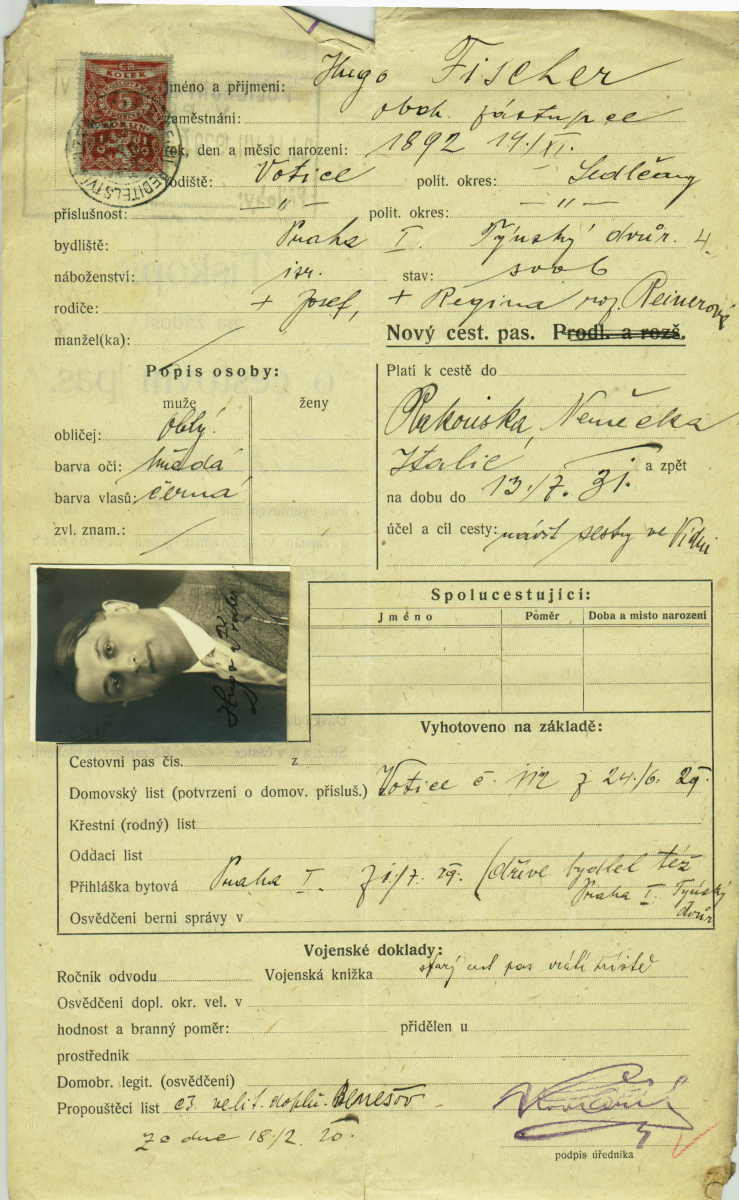 ČS
KOLEK
5
KORUN
Jméno a příjmení: Hugo Fischer
zaměstnání: obch. zástupce
rok, den a měsíc narození: 1892 14./XI.
rodiště: Votice polit. okres: Sedlčany
příslušnost: — " — polit. okres: — " —
bydliště: Praha I. Týnský dvůr. 4.
náboženství: isr. stav: svob
rodiče: + Josef, + Regina roz. Reinerová
manžel(ka): /
Nový cest. pas. Prodl. a rozš.
Popis osoby:
muže ženy
obličej: oblý
barva očí: hnědá
barva vlasů: černá
zvl. znam.: /
Platí k cestě do
Rakouska, Německa
Italie a zpět
na dobu do 13./7. 31.
účel a cíl cesty: návšt sestry ve Vídni
Hugo Fischer
Spolucestující:
Jméno Poměr Doba a místo narození
Vyhotoveno na základě:
Cestovní pas čís. z
Domovský list (potvrzení o domov. přísluš.) Votice č. z 24./6. 29.
Křestní (rodný) list
Oddací list
Přihláška bytová Praha I. z 1/7. 29. (dříve bydlel též
Praha I. Týnský
dvůr
Osvědčení berní správy v
Vojenské doklady:
Ročník odvodu Vojenská knížka starý pas
Osvědčení dopl. okr. vel. v
hodnost a branný poměr: přidělen u
prostředník
Domobr. legit. (osvědčení)
Propouštěcí list čs. velit. doplň. Benešov
ze dne 18/2. 20.
podpis úředníka